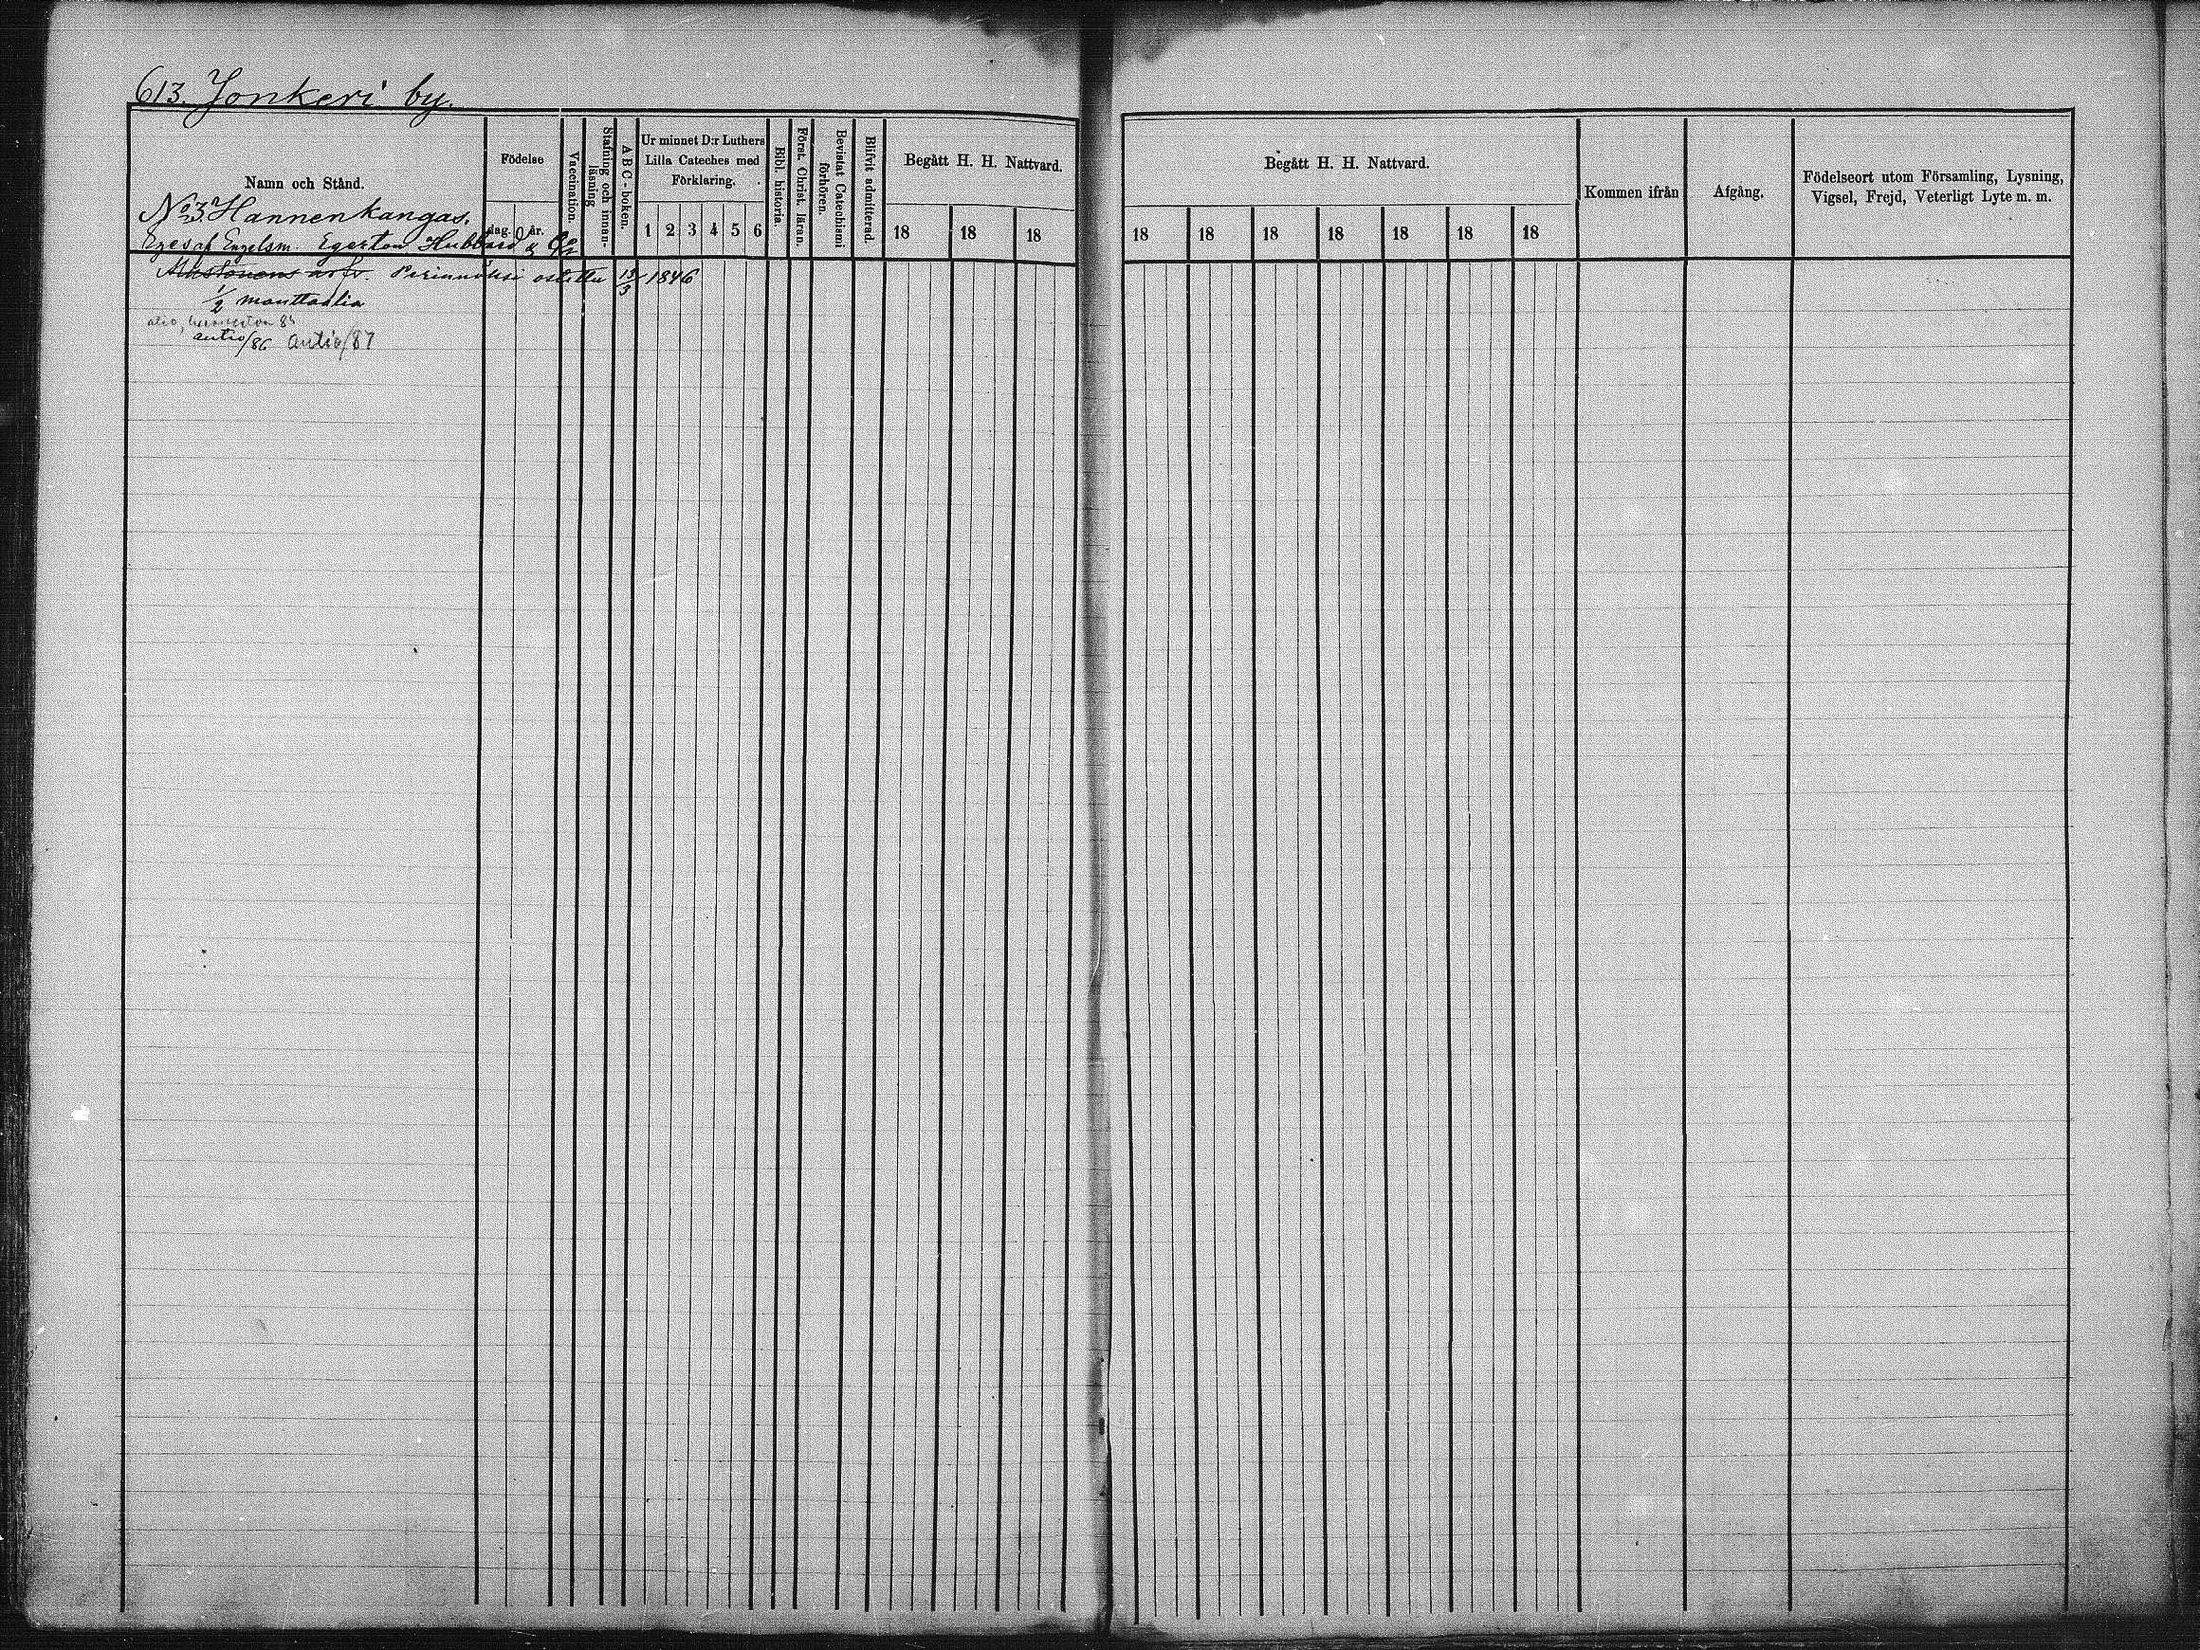 613. Jonkeri by.
Namn och Stånd.
Födelse
dag. år.
Vaccination.
Stafning och innan-
läsning
A B C-boken.
Ur minnet D:r Luthers
Lilla Cateches med
Förklaring.
1 2 3 4 5 6
Bibl. historia.
Först. Christ. läran.
Bevistat Catechismi
förhören.
Blifvit admitterad.
Begått H. H. Nattvard.
18 18 18
Begått H. H. Nattvard.
18 18 18 18 18 18 18
Kommen ifrån
Afgång.
Födelseort utom Församling, Lysning,
Vigsel, Frejd, Veterligt Lyte m. m.
No 3 Hannenkangas.
Eges af Engelsm. Egerton Hubbard & Co
Perinnöksi ostettu 13/3 1846
1/2 manttaalia
autio/86 autio/87